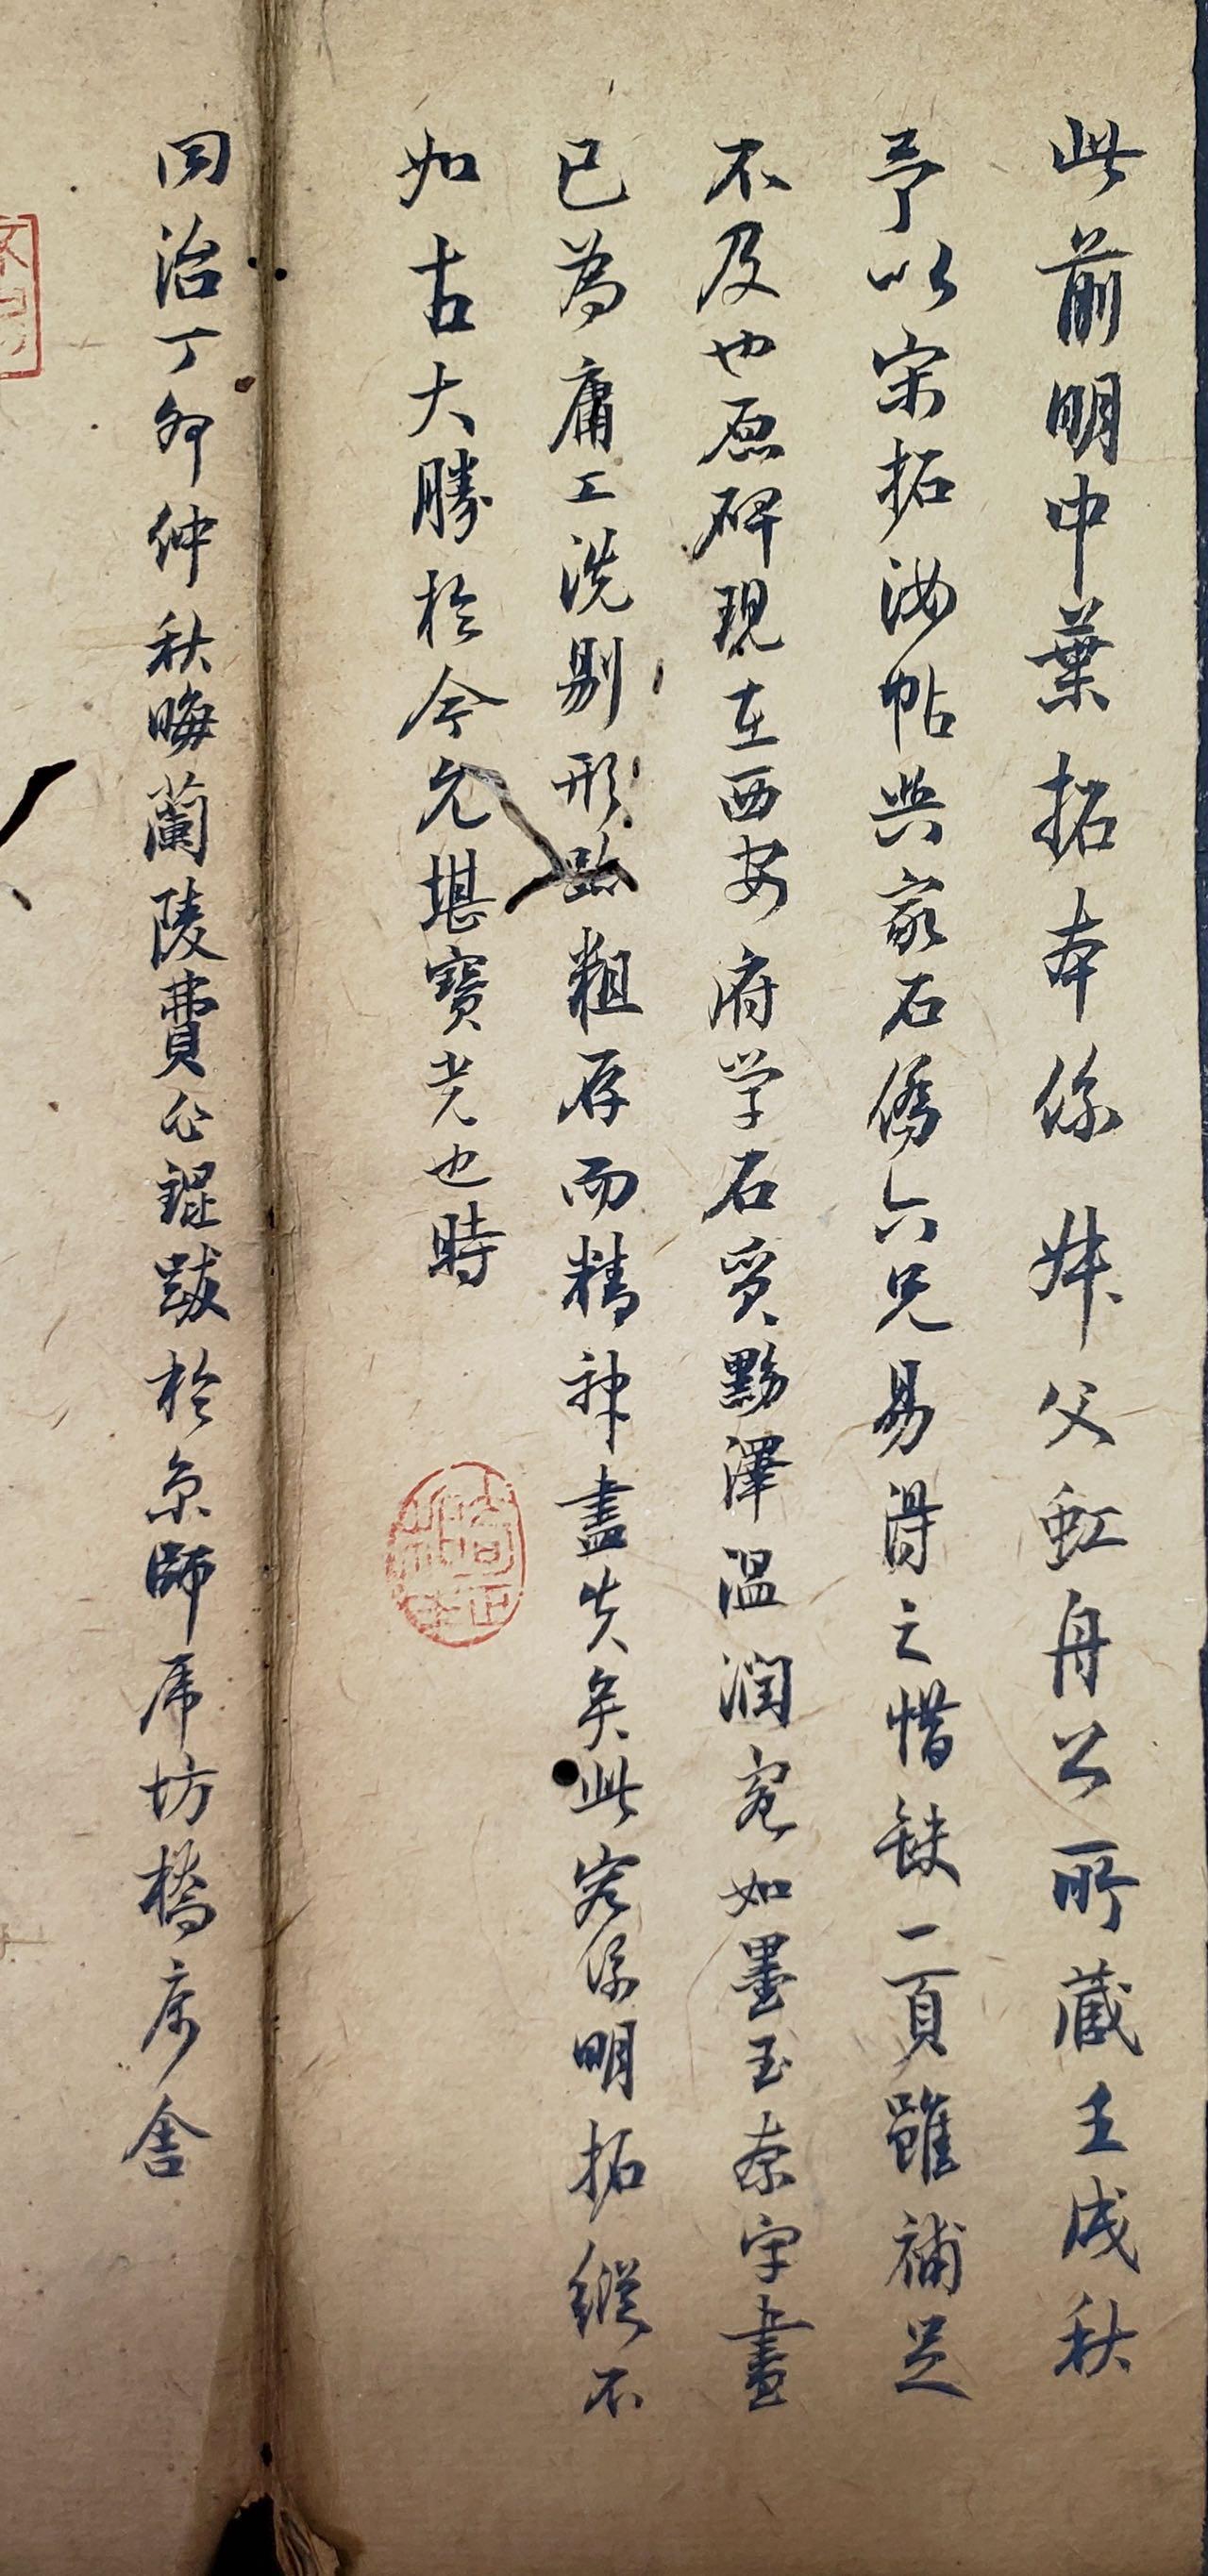 此前明中葉拓本係 叔父虹舟公所蔵壬戌秋
予以宋拓汝帖與家石僑六兄易得之惜缺二頁雖補足
不及也原碑現在西安府学石質黝澤溫潤宛如墨玉奈字畫
已為庸工洗剔形跡粗存而精神盡失矣此客係明拓縱不
如古大勝於今允堪寶光也時
同治丁卯仲秋晦蘭陵費公錕跋於京師虎坊橋廖舍